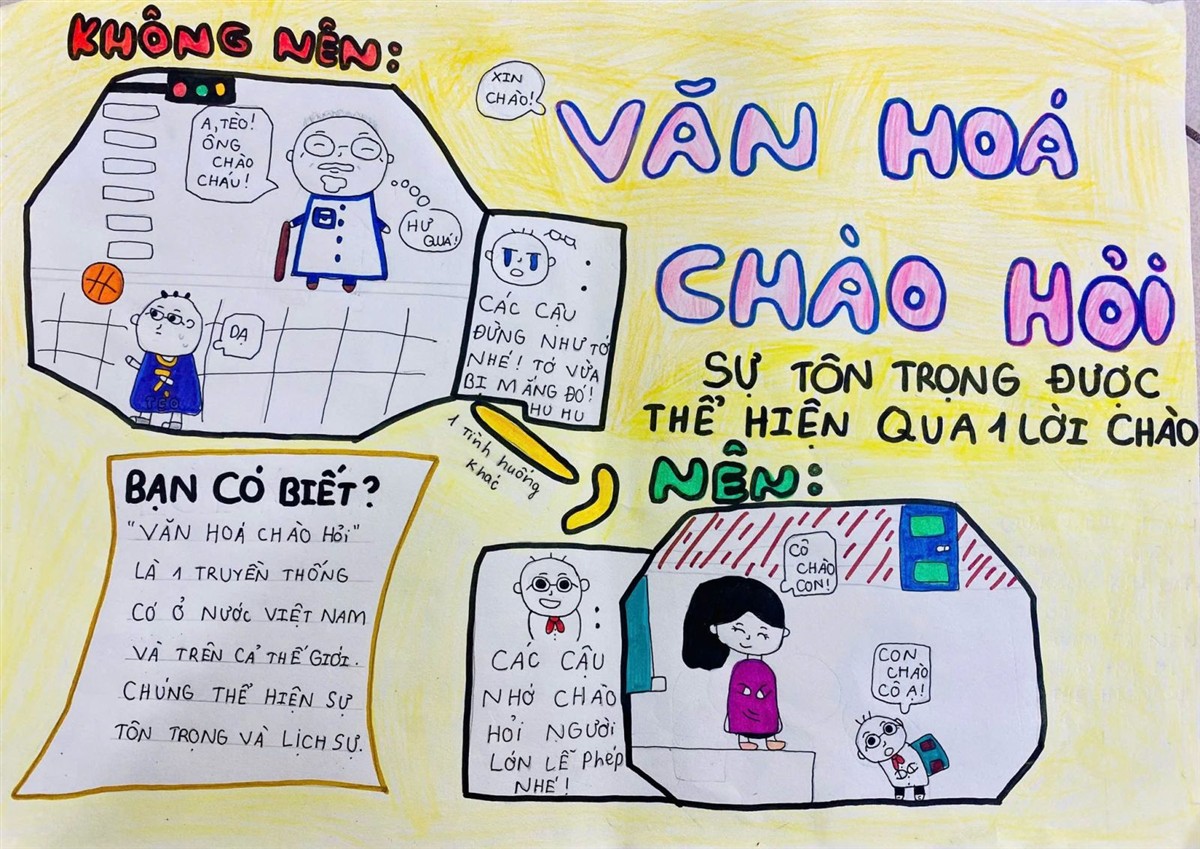 KHÔNG NÊN:
A, TÈO!
ÔNG
CHÀO
CHÁU!
HƯ
QUÁ!
DẠ
TEO
:
CÁC CẬU
ĐỪNG NHƯ TỚ
NHÉ! TỚ VỪA
BỊ MẮNG ĐÓ!
HU HU
1 Tình huống
khác
XIN
CHÀO!
VĂN HOÁ
CHÀO HỎI
SỰ TÔN TRỌNG ĐƯỢC
THỂ HIỆN QUA 1 LỜI CHÀO
BẠN CÓ BIẾT?
"VĂN HOÁ CHÀO HỎI"
LÀ 1 TRUYỀN THỐNG
CÓ Ở NƯỚC VIỆT NAM
VÀ TRÊN CẢ THẾ GIỚI.
CHÚNG THỂ HIỆN SỰ
TÔN TRỌNG VÀ LỊCH SỰ.
NÊN:
:
CÁC CẬU
NHỚ CHÀO
HỎI NGƯỜI
LỚN LỄ PHÉP
NHÉ!
CÔ
CHÀO
CON!
CON
CHÀO
CÔ Ạ!